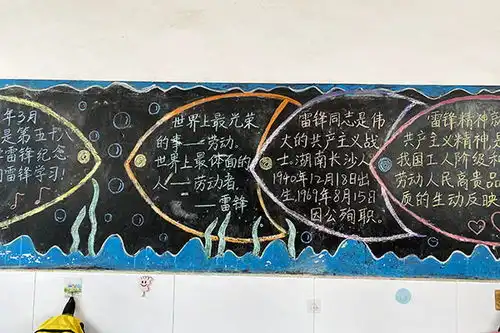 年3月
是第五十
雷锋纪念
雷锋学习!
世界上最光荣
的事——劳动.
世界上最体面的
人——劳动者.
——雷锋
雷锋同志是伟
大的共产主义战
士,湖南长沙人
1940年12月18日出
生,1969年8月15日
因公殉职。
雷锋精神
共产主义精神,是
我国工人阶级
劳动人民高贵品
质的生动反映